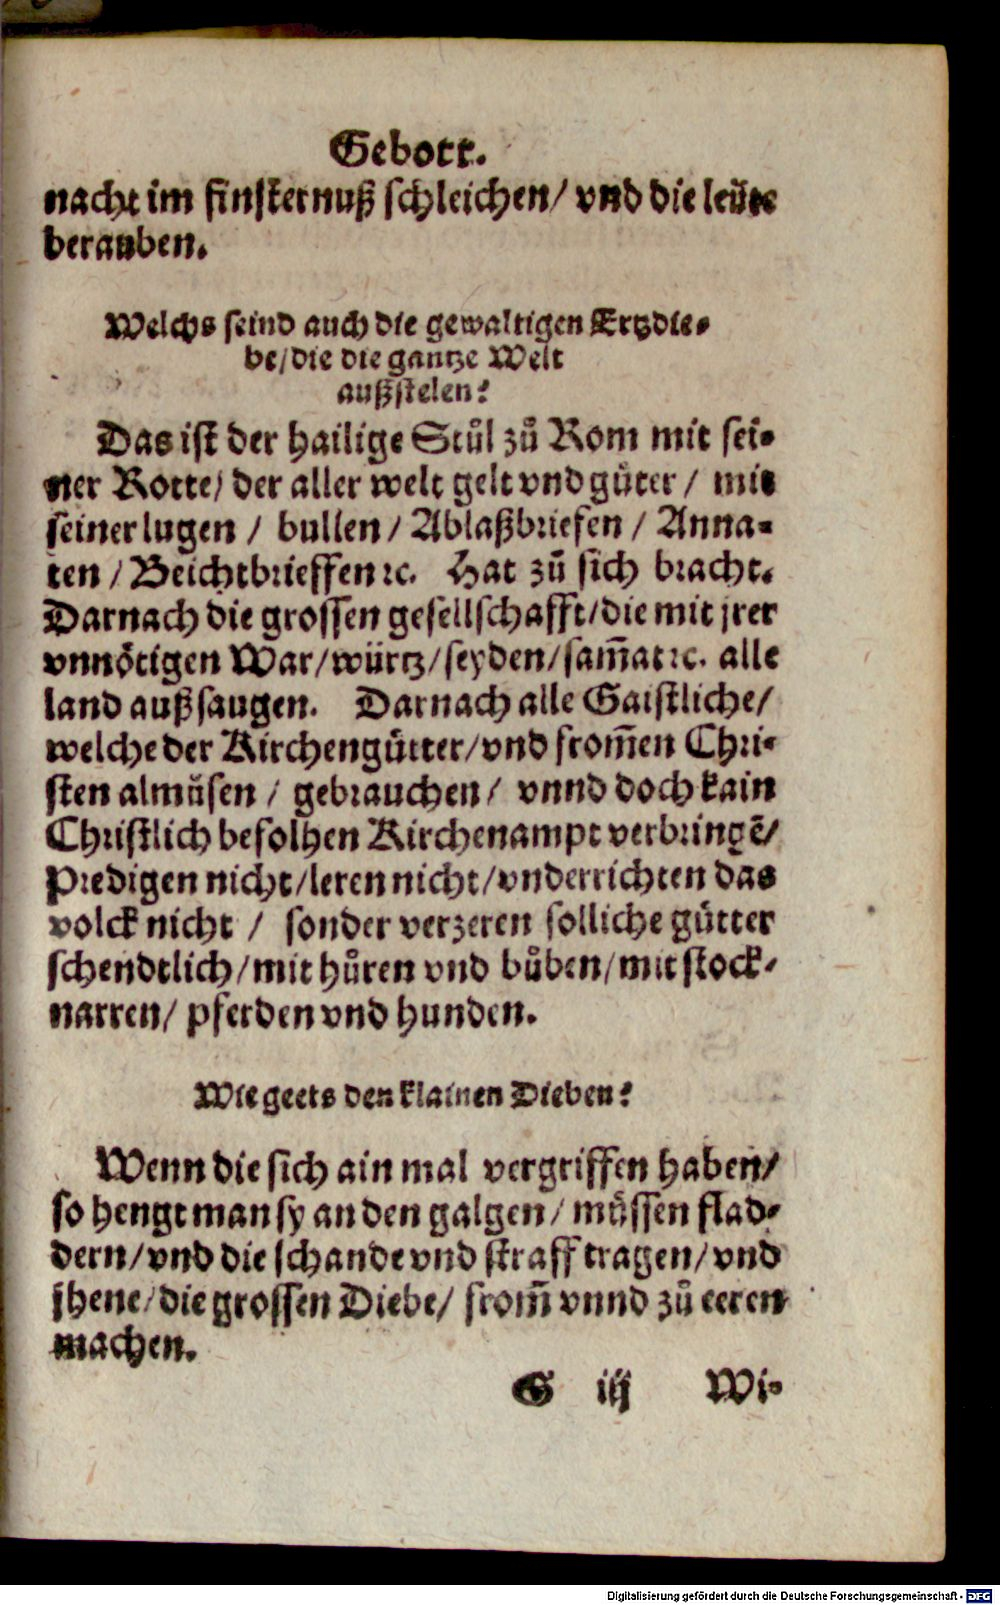 Gebott.
nacht im finsternuß schleichen/ vnd die leüte
berauben.
Welchs seind auch die gewaltigen Ertzdie-
be/ die die gantze Welt
außstelen?
Das ist der hailige Stůl zů Rom mit sei-
ner Rotte/ der aller welt gelt vnd gůter/ mit
seiner lugen/ bullen/ Ablaßbriefen/ Anna-
ten/ Beichtbrieffen ꝛc. Hat zů sich bracht.
Darnach die grossen gesellschafft/ die mit jrer
vnnötigen War/ würtz/ seyden/ sam̃at ꝛc. alle
land außsaugen. Darnach alle Gaistliche/
welche der Kirchengůtter/ vnd from̃en Chri-
sten almůsen/ gebrauchen/ vnnd doch kain
Christlich befolhen Kirchenampt verbringẽ/
Predigen nicht/ leren nicht/ vnderrichten das
volck nicht/ sonder verzeren solliche gůtter
schendtlich/ mit hůren vnd bůben/ mit stock-
narren/ pferden vnd hunden.
Wie geets den klainen Dieben?
Wenn die sich ain mal vergriffen haben/
so hengt man sy an den galgen/ můssen flad-
dern/ vnd die schande vnd straff tragen/ vnd
jhene/ die grossen Diebe/ from̃ vnnd zů eeren
machen.
G iij Wi-
Digitalisierung gefördert durch die Deutsche Forschungsgemeinschaft - DFG